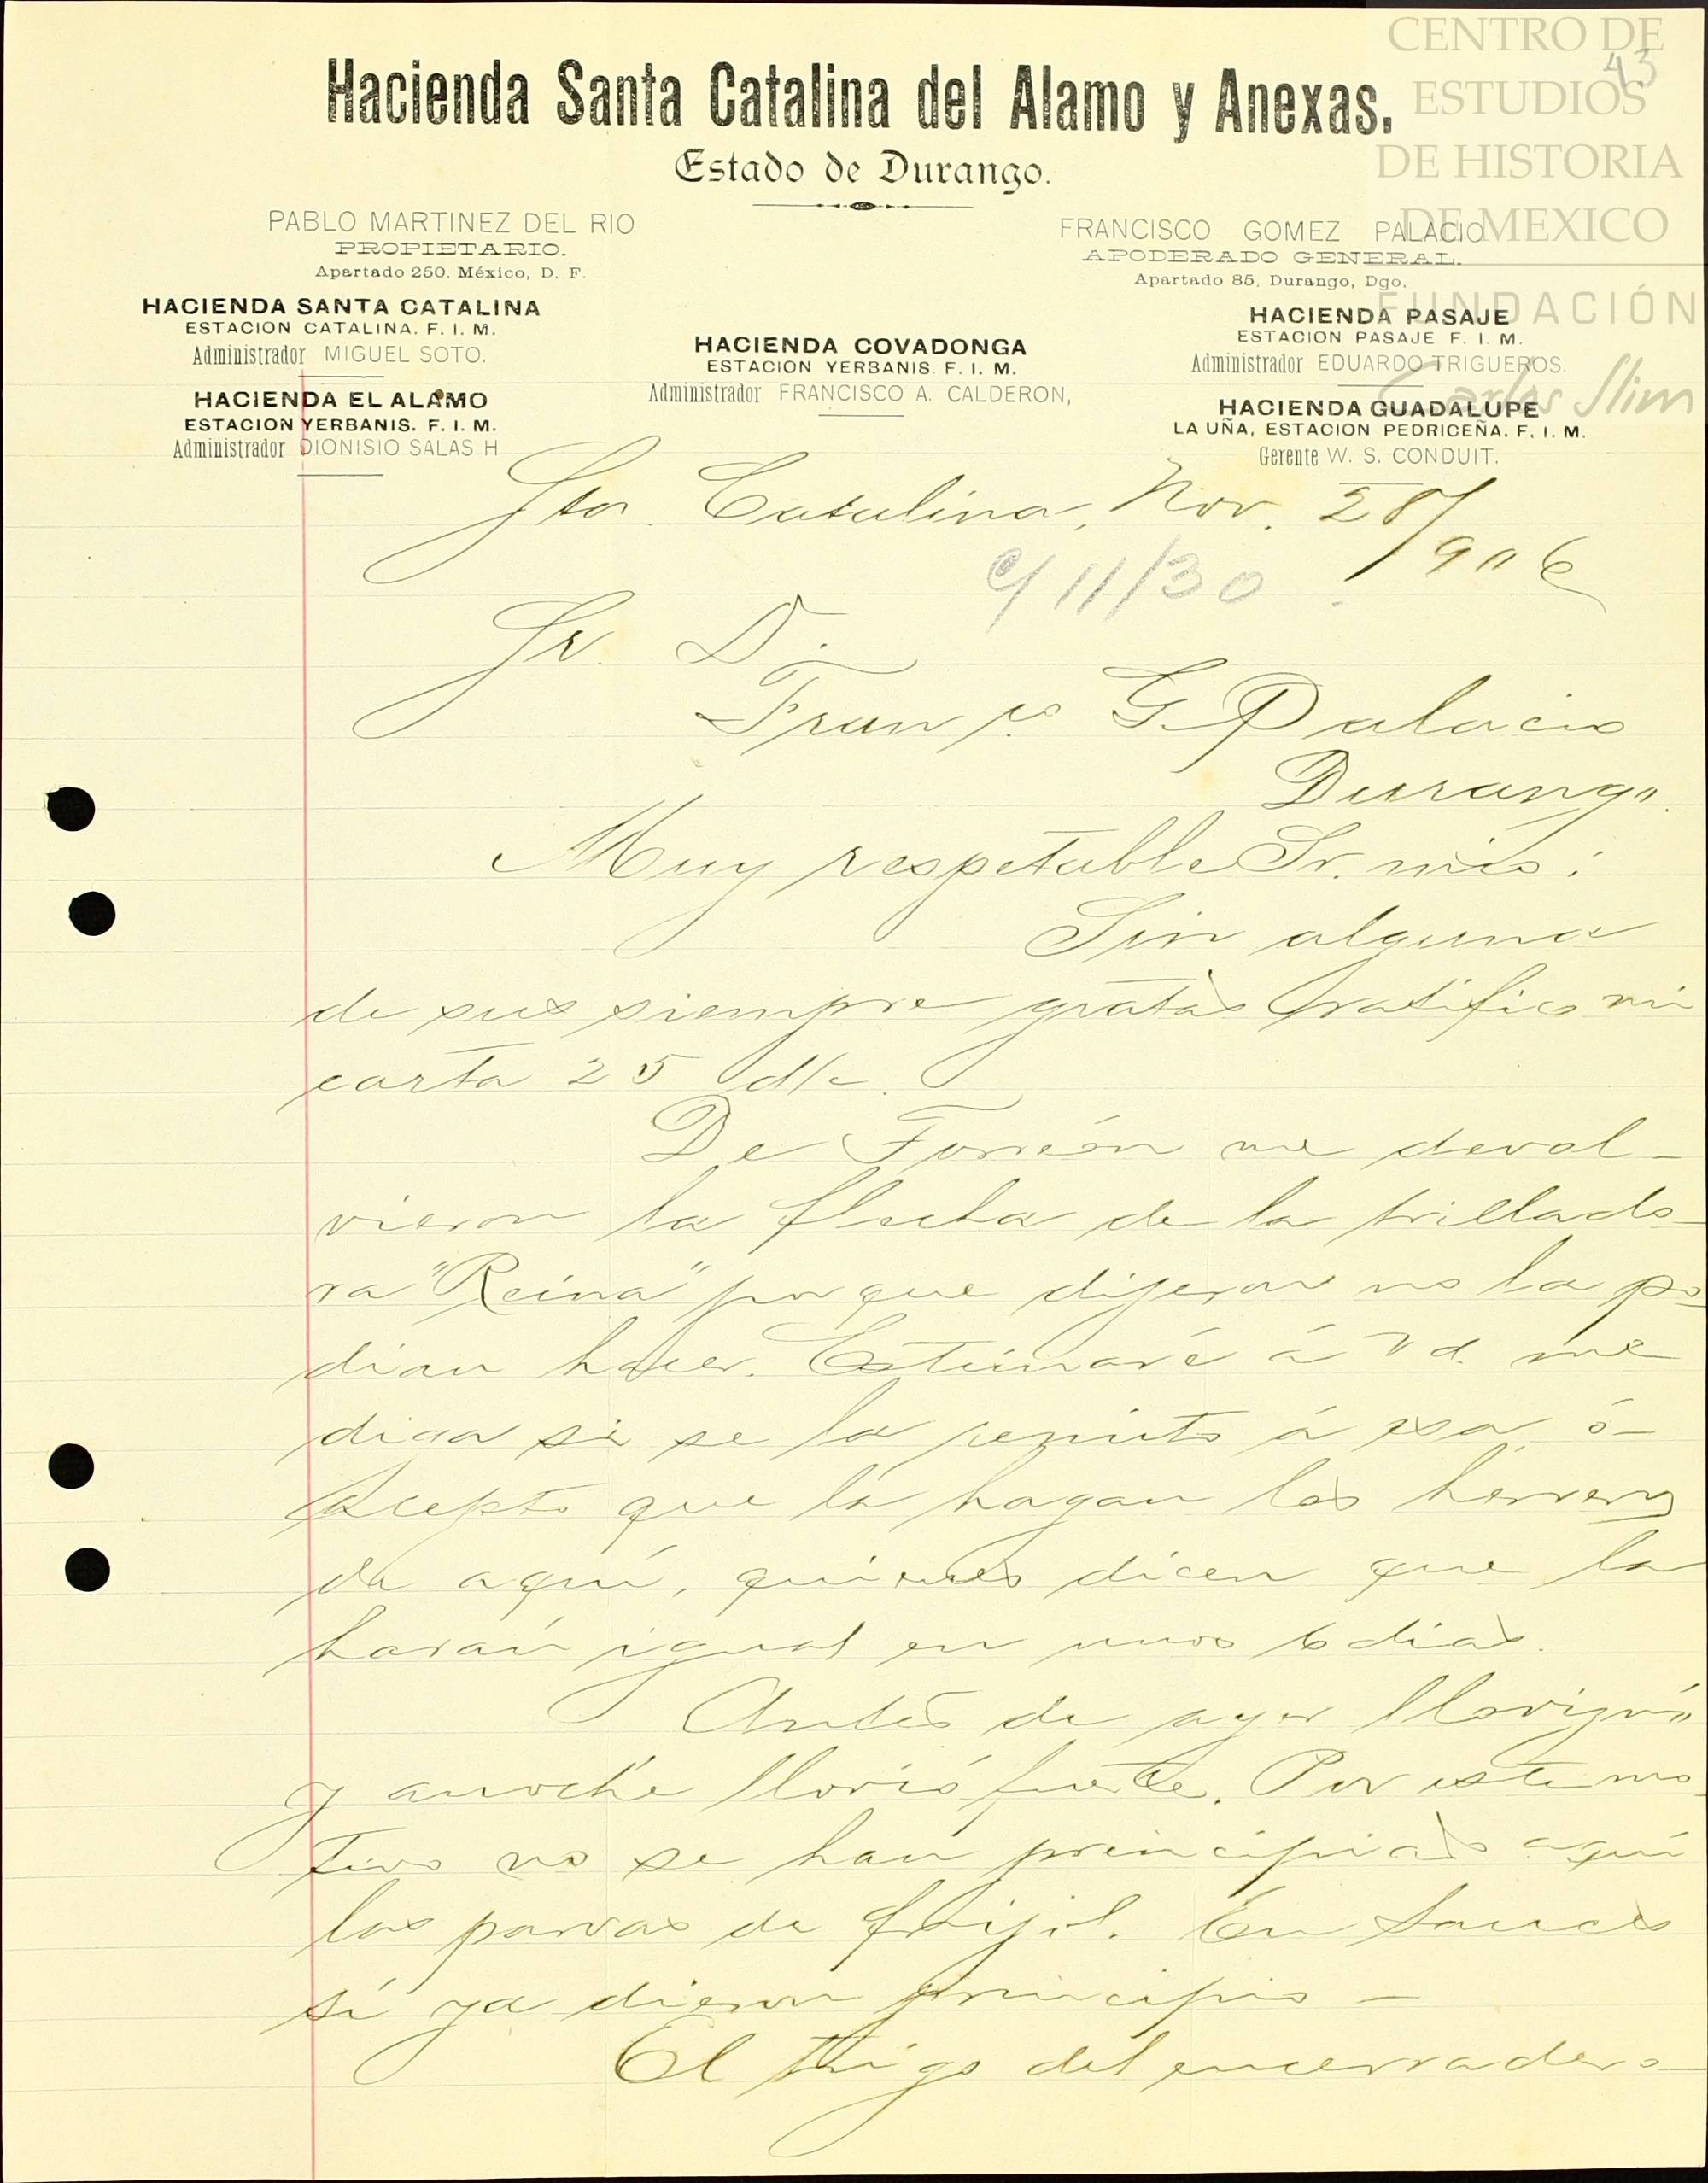 CENTRO DE
ESTUDIOS
DE HISTORIA
DE MEXICO
FUNDACIÓN
Carlos Slim
43
Hacienda Santa Catalina del Alamo y Anexas.
Estado de Durango.
PABLO MARTINEZ DEL RIO
PROPIETARIO.
Apartado 250. México, D. F.
HACIENDA SANTA CATALINA
ESTACION CATALINA. F. I. M.
Administrador MIGUEL SOTO.
HACIENDA EL ALAMO
ESTACION YERBANIS. F. I. M.
Administrador DIONISIO SALAS H
HACIENDA COVADONGA
ESTACION YERBANIS. F. I. M.
Administrador FRANCISCO A. CALDERON,
FRANCISCO GOMEZ PALACIO
APODERADO GENERAL.
Apartado 85, Durango, Dgo.
HACIENDA PASAJE
ESTACION PASAJE F. I. M.
Administrador EDUARDO TRIGUEROS.
HACIENDA GUADALUPE
LA UÑA, ESTACION PEDRICEÑA. F. I. M.
Gerente W. S. CONDUIT.
Sta. Catalina, Nov. 28/906
c/ 11/30
Sr. D.
Franco G. Palacio
Durango.
Muy respetable Sr. mio:
Sin alguna
de sus siempre gratas ratifico mi
carta 25 d/c.
De Torreón me devol-
vieron la flecha de la trillado-
ra "Reina" porque dijeron no la po-
dian hacer. Estimaré á Vd. me
diga si se la remito á esa ó-
acepto que la hagan los herreros
de aquí, quienes dicen que la
harán igual en unos 6 dias.
Antes de ayer lloviznó
y anoche llovió fuerte. Por este mo-
tivo no se han principiado aquí
las parvas de frijol. En Sauces
sí ya dieron principio -
El trigo del encerradero